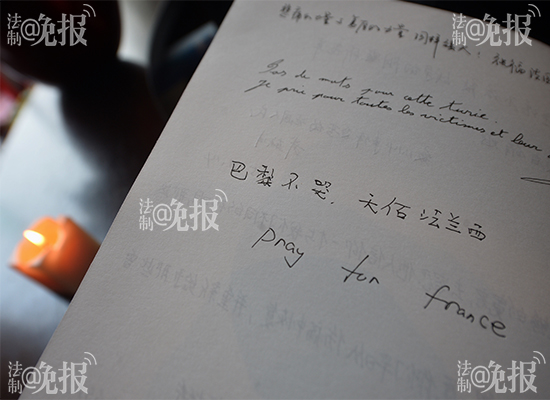 法制@晚报
法制@晚报
力量 同样
Pas de mots pour cette tuerie.
Je prie pour toutes les victimes et leur
巴黎不哭. 天佰法兰西
法制@晚报
pray for france
法制@晚报
法制@晚报